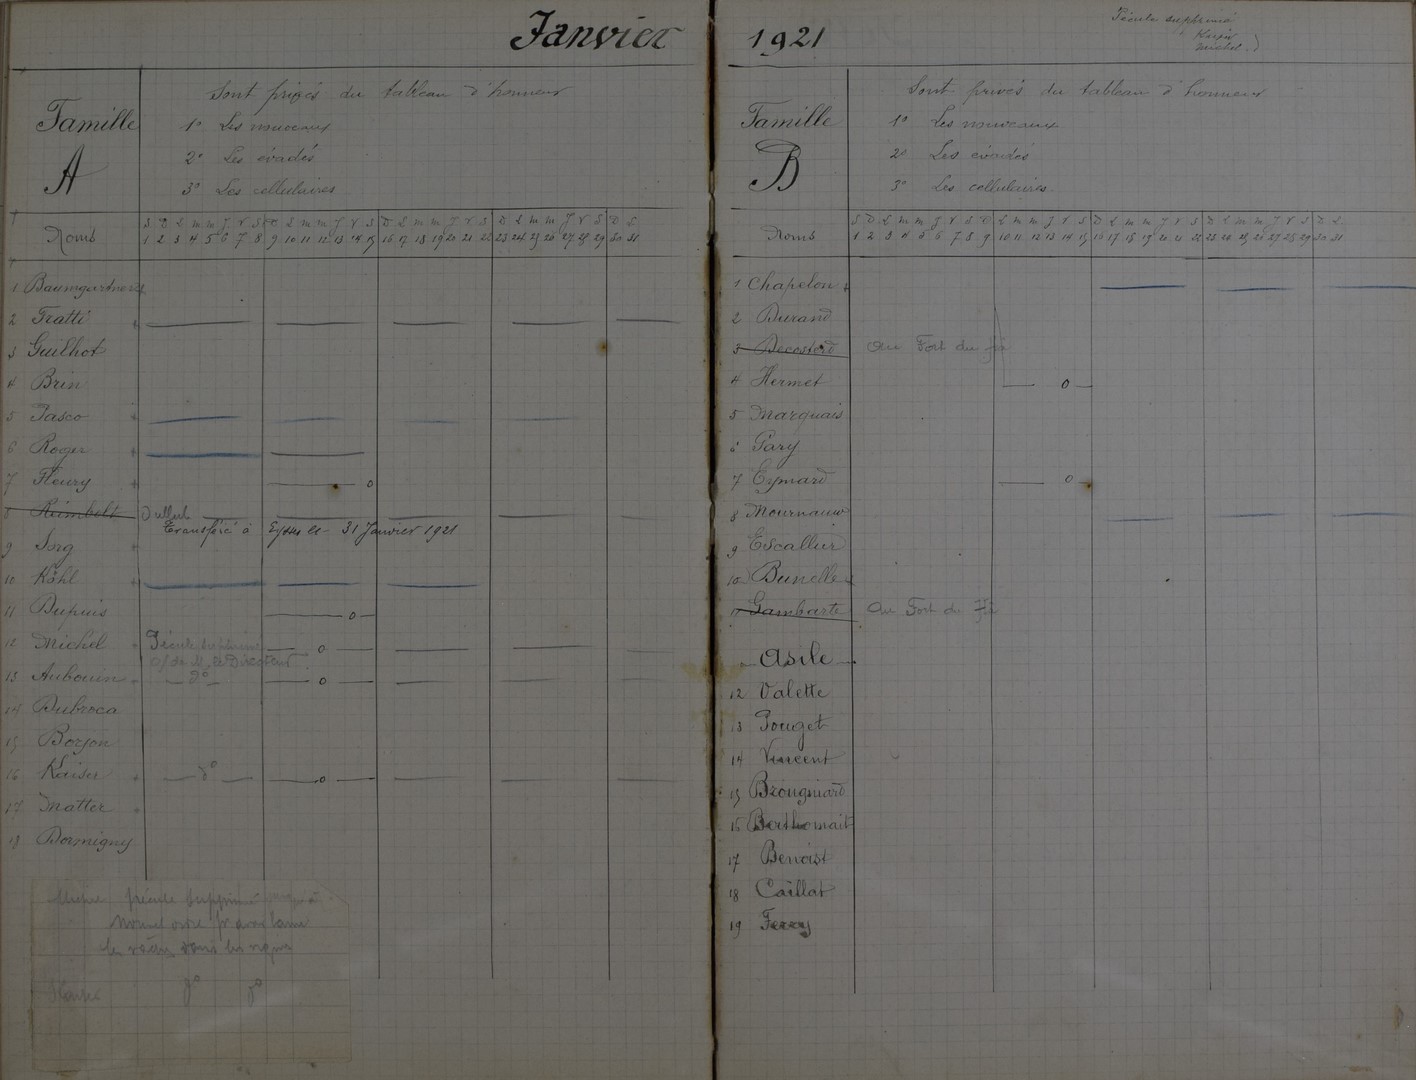 Janvier
Famille
A
Sont privés du tableau d'honneur
1° Les nouveaux
2° Les évadés
3° Les cellulaires
Noms
S D L m m J V S D L m m J V S D L m m J V S D L m m J V S D L
1 2 3 4 5 6 7 8 9 10 11 12 13 14 15 16 17 18 19 20 21 22 23 24 25 26 27 28 29 30 31
1 Baumgartner
2 Fratti
3 Guilhot
4 Brin
5 Pasco
6 Roger
7 Fleury
8 Reimbolt
Transféré à Eysses le 31 Janvier 1921
9 Sorg
10 Kohl
11 Dupuis
12 Michel Pécule supprimé
o/ de M. le Directeur
13 Aubouin d°
14 Dubroca
15 Borjon
16 Kaiser d°
17 Matter
18 Dormigny
pécule supprimé
d° d°
1921
Pécule supprimé
Michel
Famille
B
Sont privés du tableau d'honneur
1° Les nouveaux
2° Les évadés
3° Les cellulaires
Noms
S D L m m J V S D L m m J V S D L m m J V S D L m m J V S D L
1 2 3 4 5 6 7 8 9 10 11 12 13 14 15 16 17 18 19 20 21 22 23 24 25 26 27 28 29 30 31
1 Chapelon
2 Durand
3 Decosterd Au Fort du Hâ
4 Hermet
5 Marquais
6 Pary
7 Eymard
8 Mournaux
9 Escallier
10 Bunelle
11 Gambarte Au Fort du Hâ
Asile
12 Valette
13 Pouget
14 Vincent
15 Brougniard
16 Berthomait
17 Benoist
18 Caillat
19 Ferry